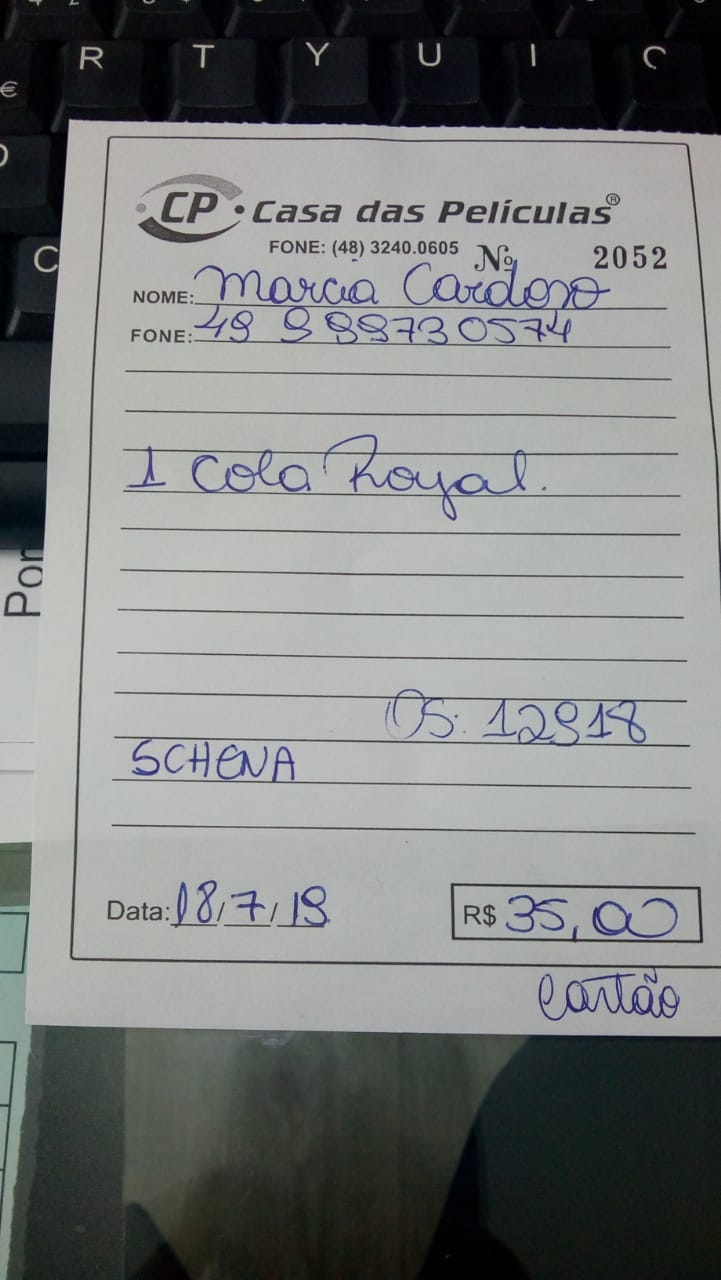 R T Y U I O
€
C
Por
CP • Casa das Películas®
FONE: (48) 3240.0605 Nº 2052
NOME: Marcia Cardoso
FONE: 49 9 99730574
1 Cola Royal.
OS: 12918
SCHENA
Data: 18/7/19 R$ 35,00
Cartão